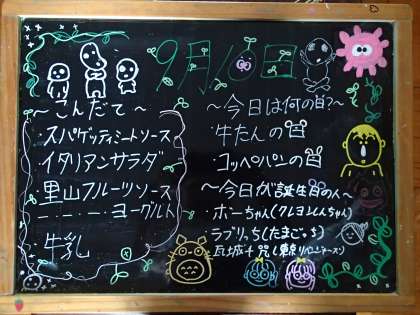 9月10日
～こんだて～
・スパゲッティミートソース
・イタリアンサラダ
・里山フルーツソース
ーーー・ヨーグルト
・牛乳
～今日は何の日？～
・牛たんの日
・コッペパンの日
～今日が誕生日の人～
・ボーちゃん(クレヨンしんちゃん)
・ラブリっち(たまごっち)